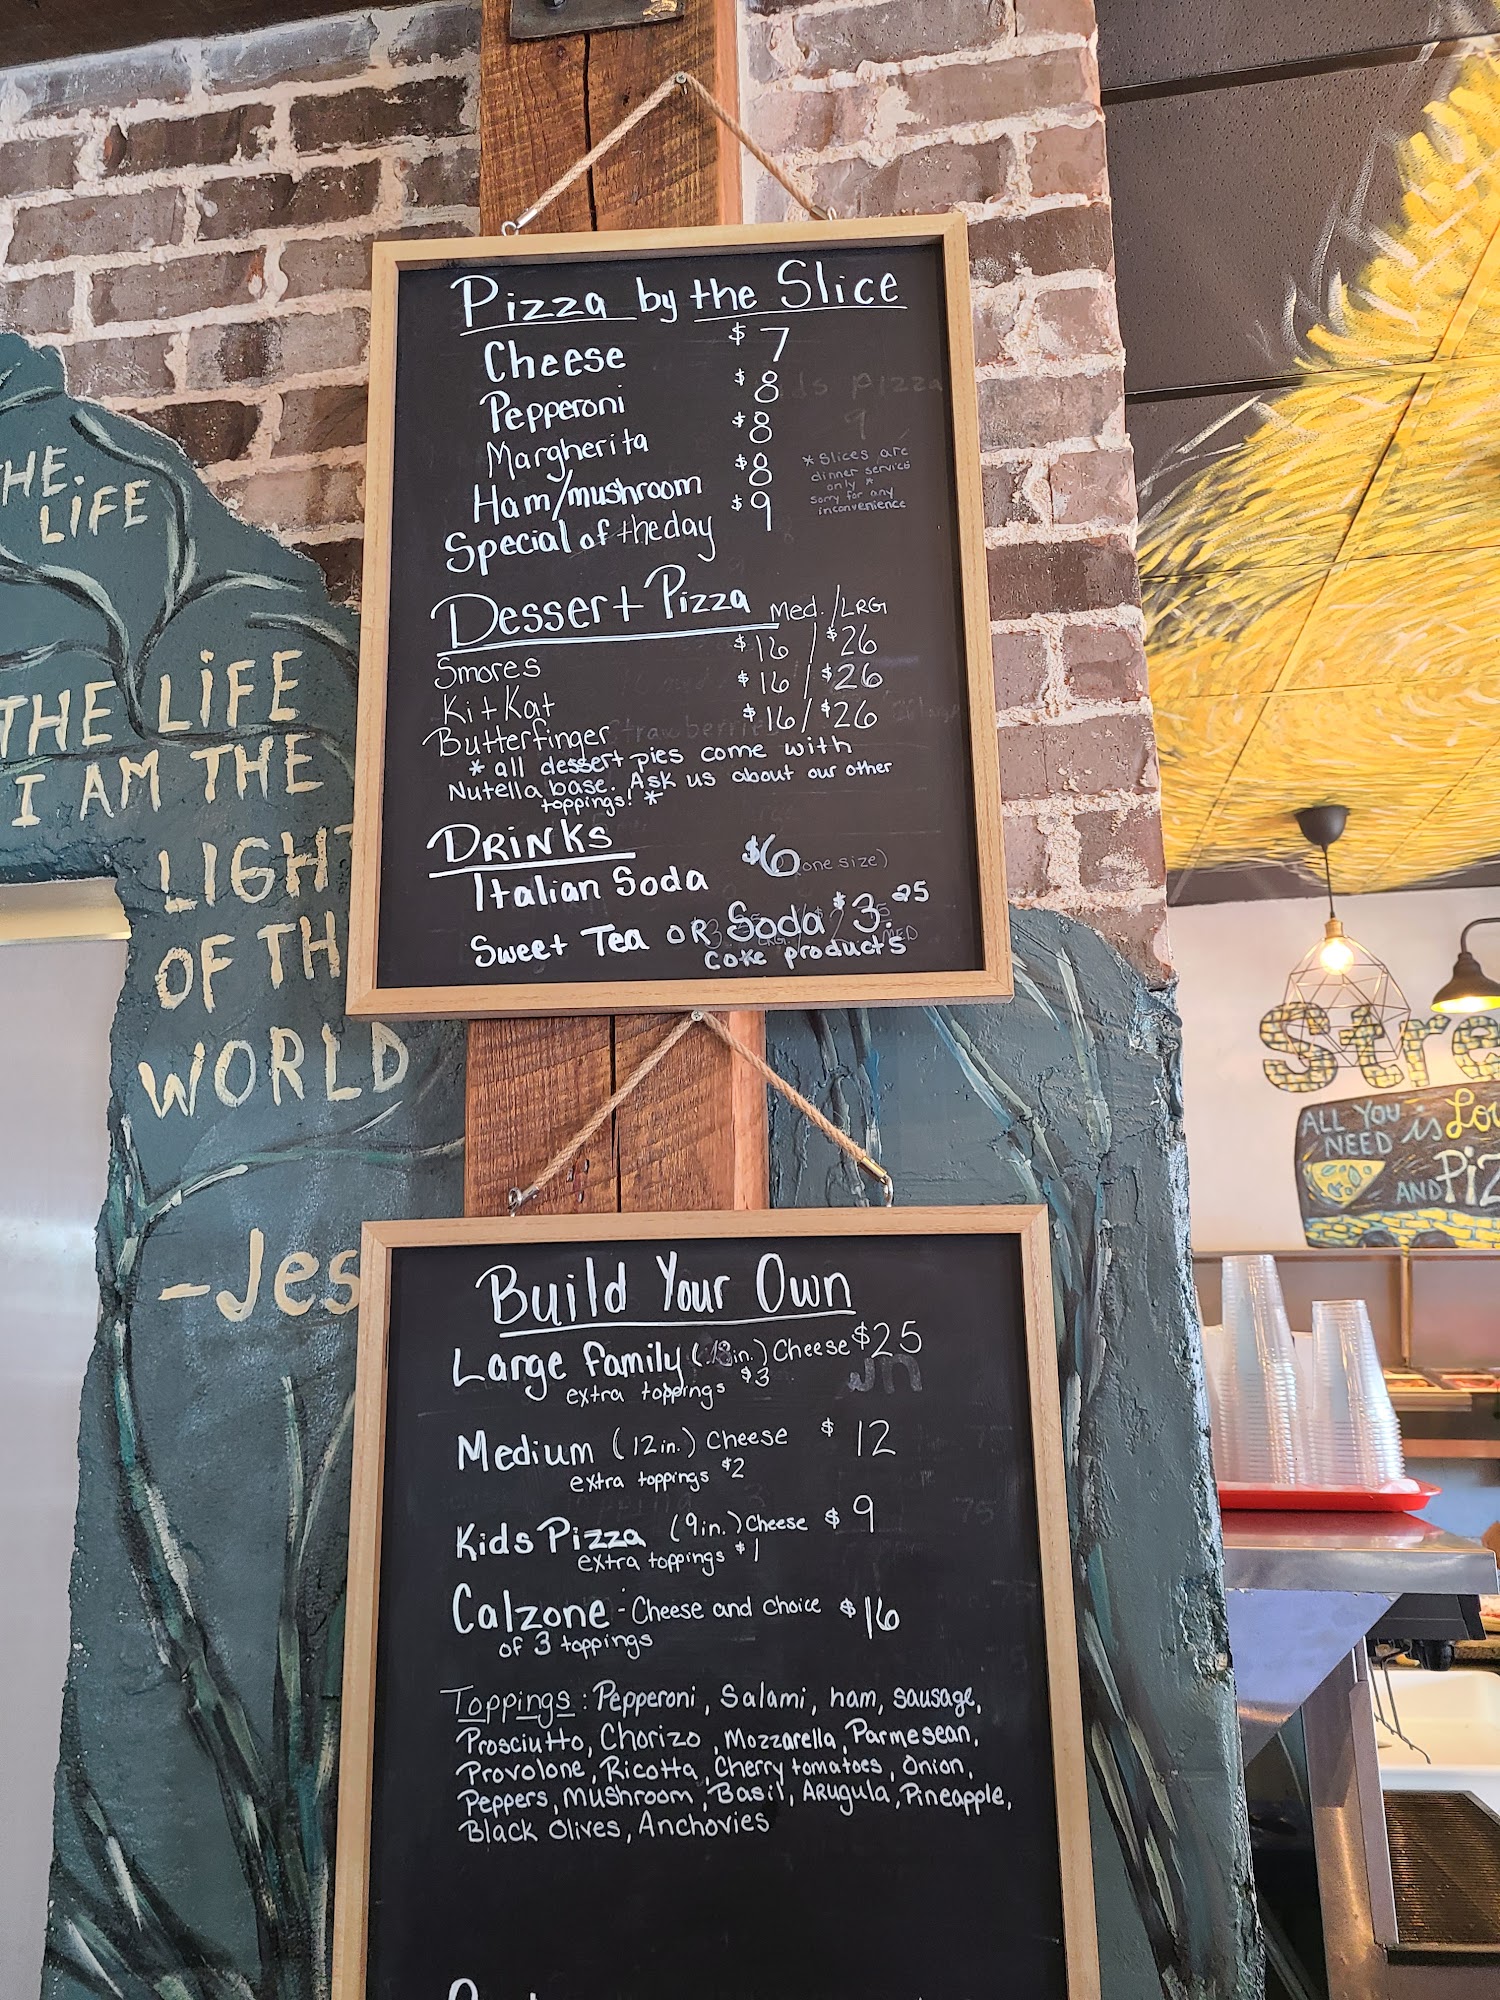 Pizza by the Slice
Cheese $7
Pepperoni $8
Margherita $8
Ham/mushroom $8
Special of the day $9
* Slices are
dinner service
only *
Sorry for any
inconvenience
Dessert Pizza Med. / LRG
Smores $16 / $26
Kit Kat $16 / $26
Butterfinger $16 / $26
* all dessert pies come with
Nutella base. Ask us about our other
toppings! *
DRINKS
Italian Soda $6 (one size)
Sweet Tea OR Soda $3.25
Coke products
Build Your Own
Large family (18in.) Cheese $25
extra toppings $3
Medium (12in.) Cheese $12
extra toppings $2
Kids Pizza (9in.) Cheese $9
extra toppings $1
Calzone - Cheese and choice $16
of 3 toppings
Toppings: Pepperoni, Salami, ham, sausage,
Prosciutto, Chorizo, Mozzarella, Parmesean,
Provolone, Ricotta, Cherry tomatoes, Onion,
Peppers, Mushroom, Basil, Arugula, Pineapple,
Black Olives, Anchovies
HE
LiFE
THE LiFE
I AM THE
LIGHT
OF TH
WORLD
-Jes
Stre
ALL YOU
NEED is Lo
AND Piz